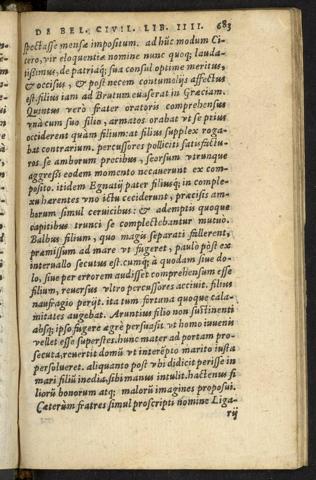 DE BEL. CIVIL. LIB. IIII. 683
spectasse mensæ impositum. ad hūc modum Ci
cero, vir eloquentiæ nomine nunc quoq; lauda-
tissimus, de patriáq; sua consul optime meritus,
& occisus, & post necem contumelijs affectus
est. filius iam ad Brutum euaserat in Græciam.
Quintus verò frater oratoris comprehensus
vnà cum suo filio, armatos orabat vt se priùs
occiderent quàm filium: at filius supplex roga-
bat contrarium. percussores polliciti satisfactu-
ros se amborum precibus, seorsum vtrunque
aggreßi eodem momento necauerunt ex com-
posito. itidem Egnatij pater filiusq; in comple-
xu hærentes vno ictu ceciderunt, præcisis am-
borum simul ceruicibus: & ademptis quoque
capitibus trunci se complectebantur mutuo.
Balbus filium, quo magis separati fallerent,
præmissum ad mare vt fugeret, paulò pòst ex
interuallo secutus est. cumq; à quodam siue do-
lo, siue per errorem audisset comprehensum esse
filium, reuersus vltro percussores acciuit. filius
naufragio perijt. ita tum fortuna quoque cala-
mitates augebat. Aruntius filio non sustinenti
absq; ipso fugere ægrè persuasit vt homo iuuenis
vellet esse superstes. hunc mater ad portam pro-
secuta, reuertit domū vt interēpto marito iusta
persolueret. aliquanto pòst vbi didicit perisse in
mari filiū inedia, sibi manus intulit. hactenus fi
liorū bonorum atq; malorū imagines proposui.
Cæterùm fratres simul proscripti nomine Liga-
rij